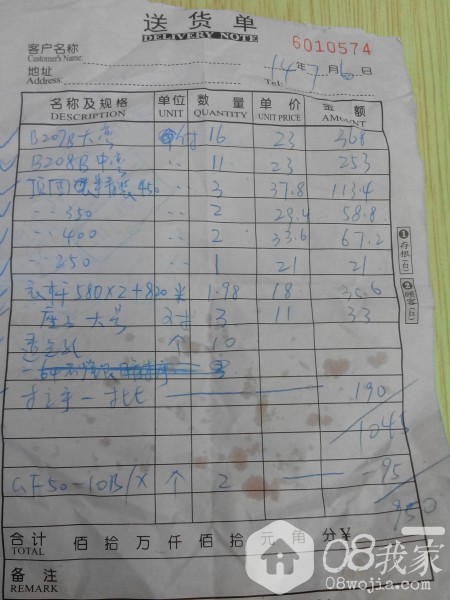 送货单
DELIVERY NOTE
6010574
客户名称
Customer's Name:
地址
Address:
Tel:
14年7月6日
名称及规格 单位 数量 单价 金额
DESCRIPTION UNIT QUANTITY UNIT PRICE AMOUNT
B207B大号 付 16 23 368
B208B中号 〃 11 23 253
450 〃 3 37.8 113.4
〃 350 〃 2 29.4 58.8
〃 400 〃 2 33.6 67.2
〃 250 〃 1 21 21
衣杆580X2+820 米 1.98 18 35.6
座 大号 对 3 11 33
个 10
拉手一批 190
1041
GF50-10B/X 个 2 -95
合计 佰拾万仟佰拾元角分¥
TOTAL
备注
REMARK
①存根(白)
②顾客(红)
08我家
08wojia.com